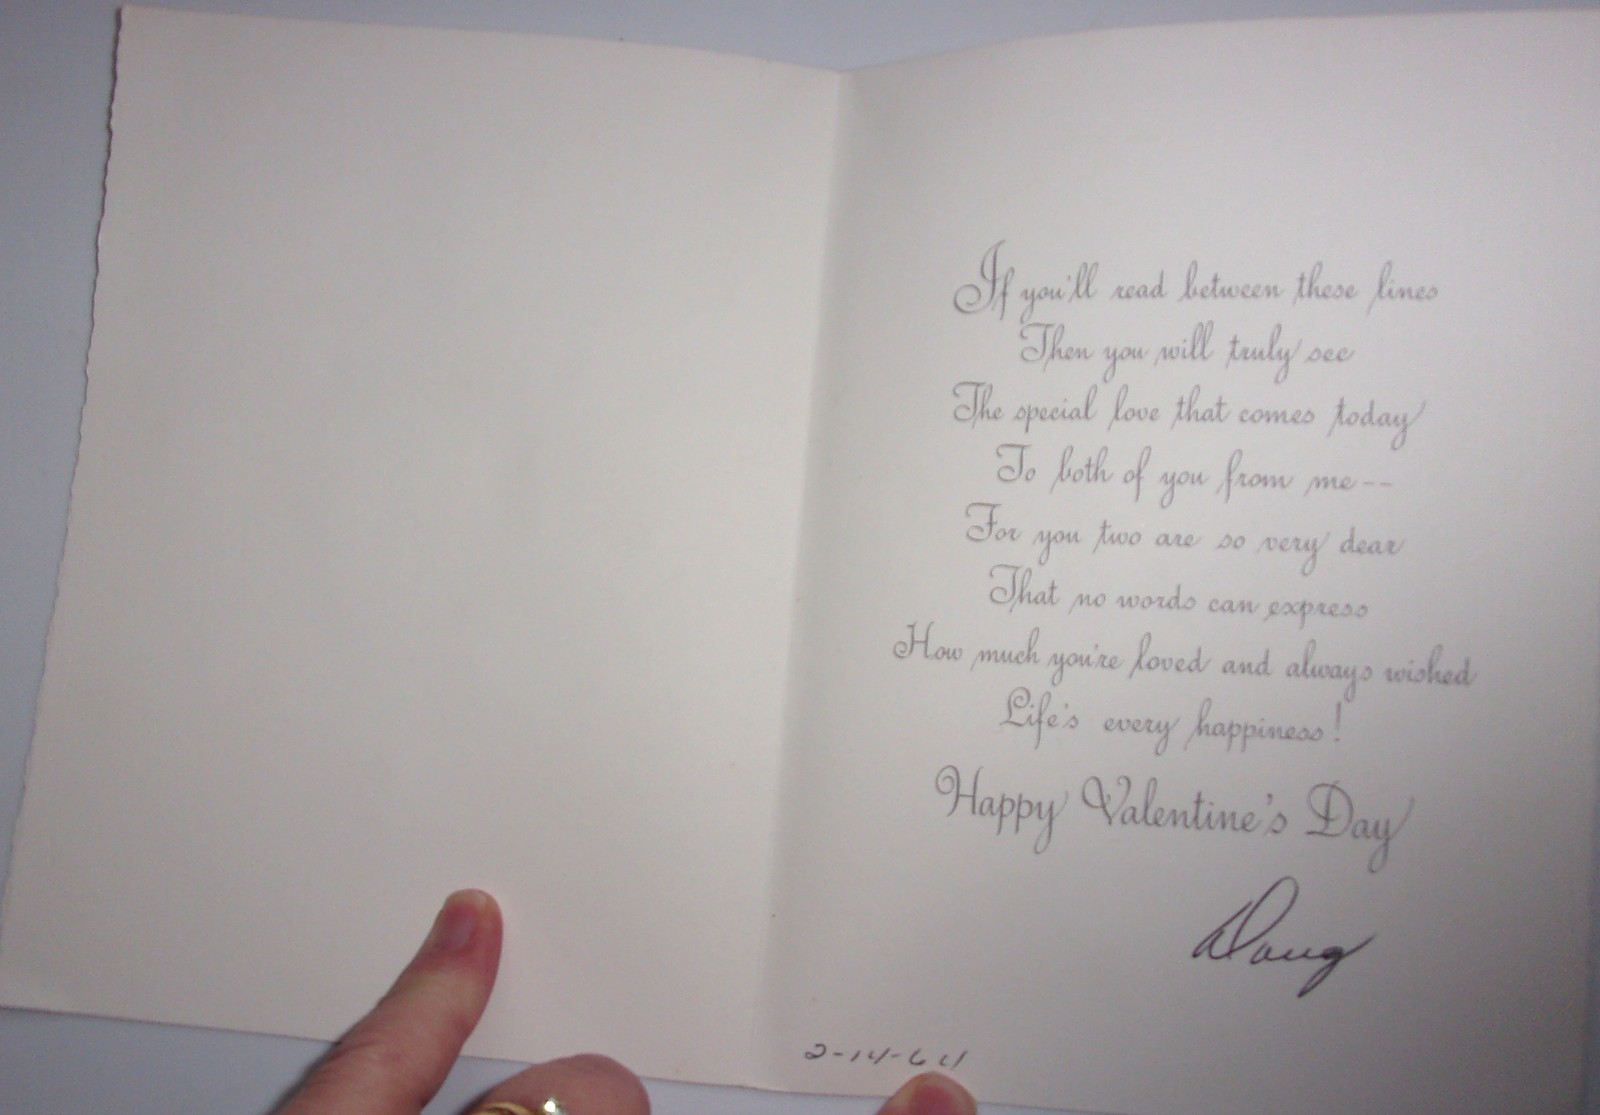 If you'll read between these lines
Then you will truly see
The special love that comes today
To both of you from me--
For you two are so very dear
That no words can express
How much you're loved and always wished
Life's every happiness!
Happy Valentine's Day
Doug
2-14-64